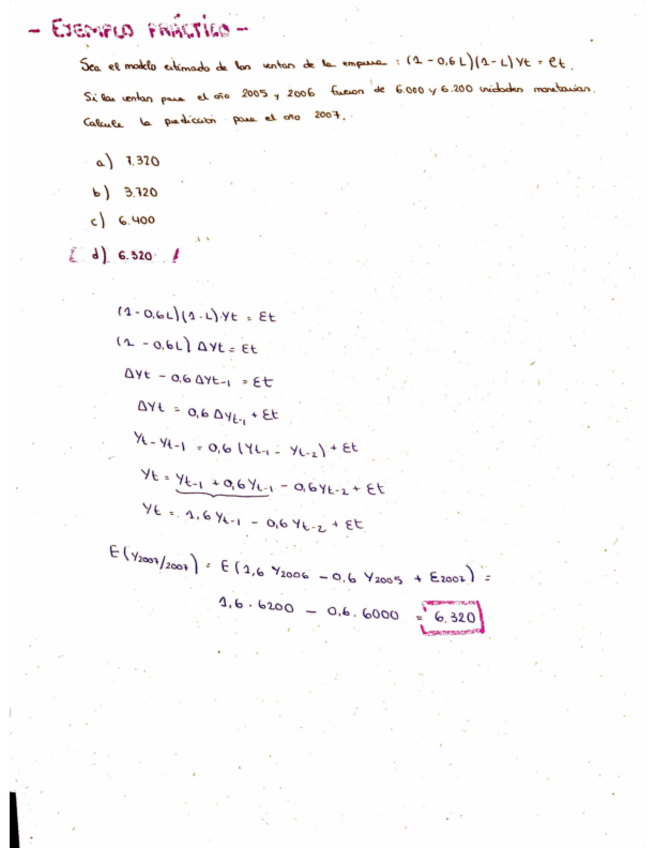 - EJEMPLO PRÁCTICO -
Sea el modelo estimado de las ventas de la empresa : (1 - 0,6 L)(1 - L) Yt = et.
Si las ventas para el año 2005 y 2006 fueron de 6.000 y 6.200 unidades monetarias.
Calcule la predicción para el año 2007.
a) 7.320
b) 3.720
c) 6.400
[ d) 6.320 ]
(1 - 0,6L)(1 - L)·Yt = Ɛt
(1 - 0,6L) ΔYt = Ɛt
ΔYt - 0,6 ΔYt-1 = Ɛt
ΔYt = 0,6 ΔYt-1 + Ɛt
Yt - Yt-1 = 0,6 (Yt-1 - Yt-2) + Ɛt
Yt = Yt-1 + 0,6 Yt-1 - 0,6 Yt-2 + Ɛt
Yt = 1,6 Yt-1 - 0,6 Yt-2 + Ɛt
E(Y2007/2007) = E(1,6 Y2006 - 0,6 Y2005 + Ɛ2007) =
1,6 · 6200 - 0,6 · 6000 = 6.320